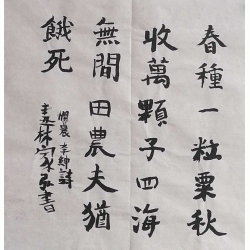 春種一粒粟秋
收萬顆子四海
無閒田農夫猶
餓死
憫農李紳詩